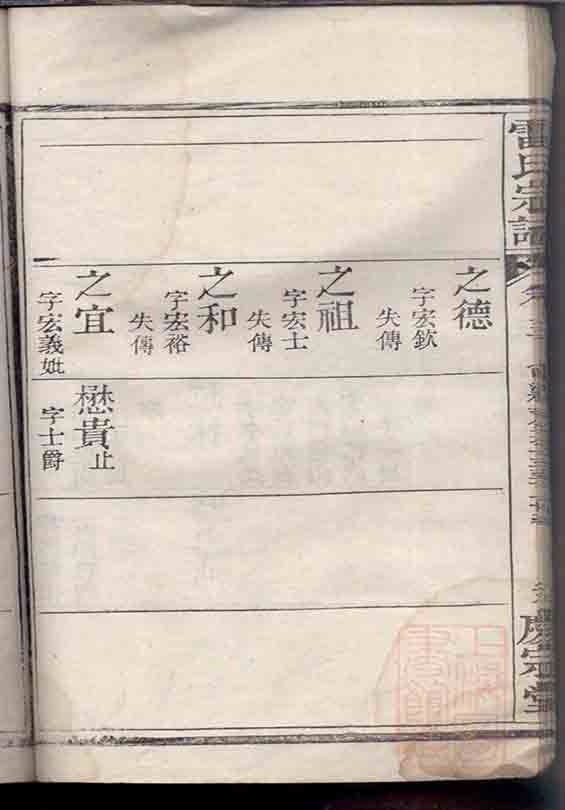 雷氏宗譜
慶宗堂
之德
字宏欽
失傳
之祖
字宏士
失傳
之和
字宏裕
失傳
之宜
字宏義妣
懋貴止
字士爵